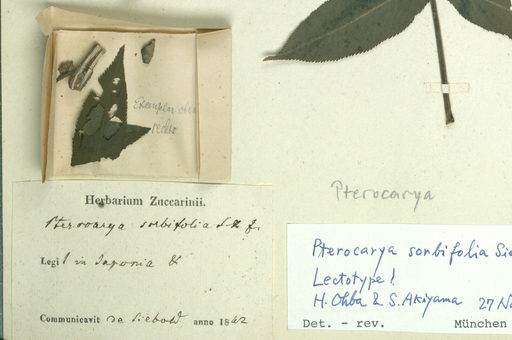 Exemplar
Herbarium Zuccarinii.
Pterocarya sorbifolia S. & Z.
Legit in Japonia
Communicavit de Siebold anno 1842
Pterocarya
Pterocarya sorbifolia Sie
Lectotype!
H. Ohba & S. Akiyama 27 No
Det. - rev. München